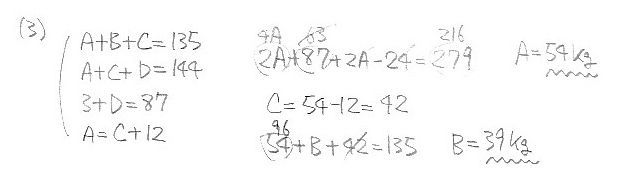 (3)
A+B+C=135
A+C+D=144
3+D=87
A=C+12
4A 63 216
2A+87+2A-24=279
A=54kg
C=54-12=42
96
54+B+42=135
B=39kg